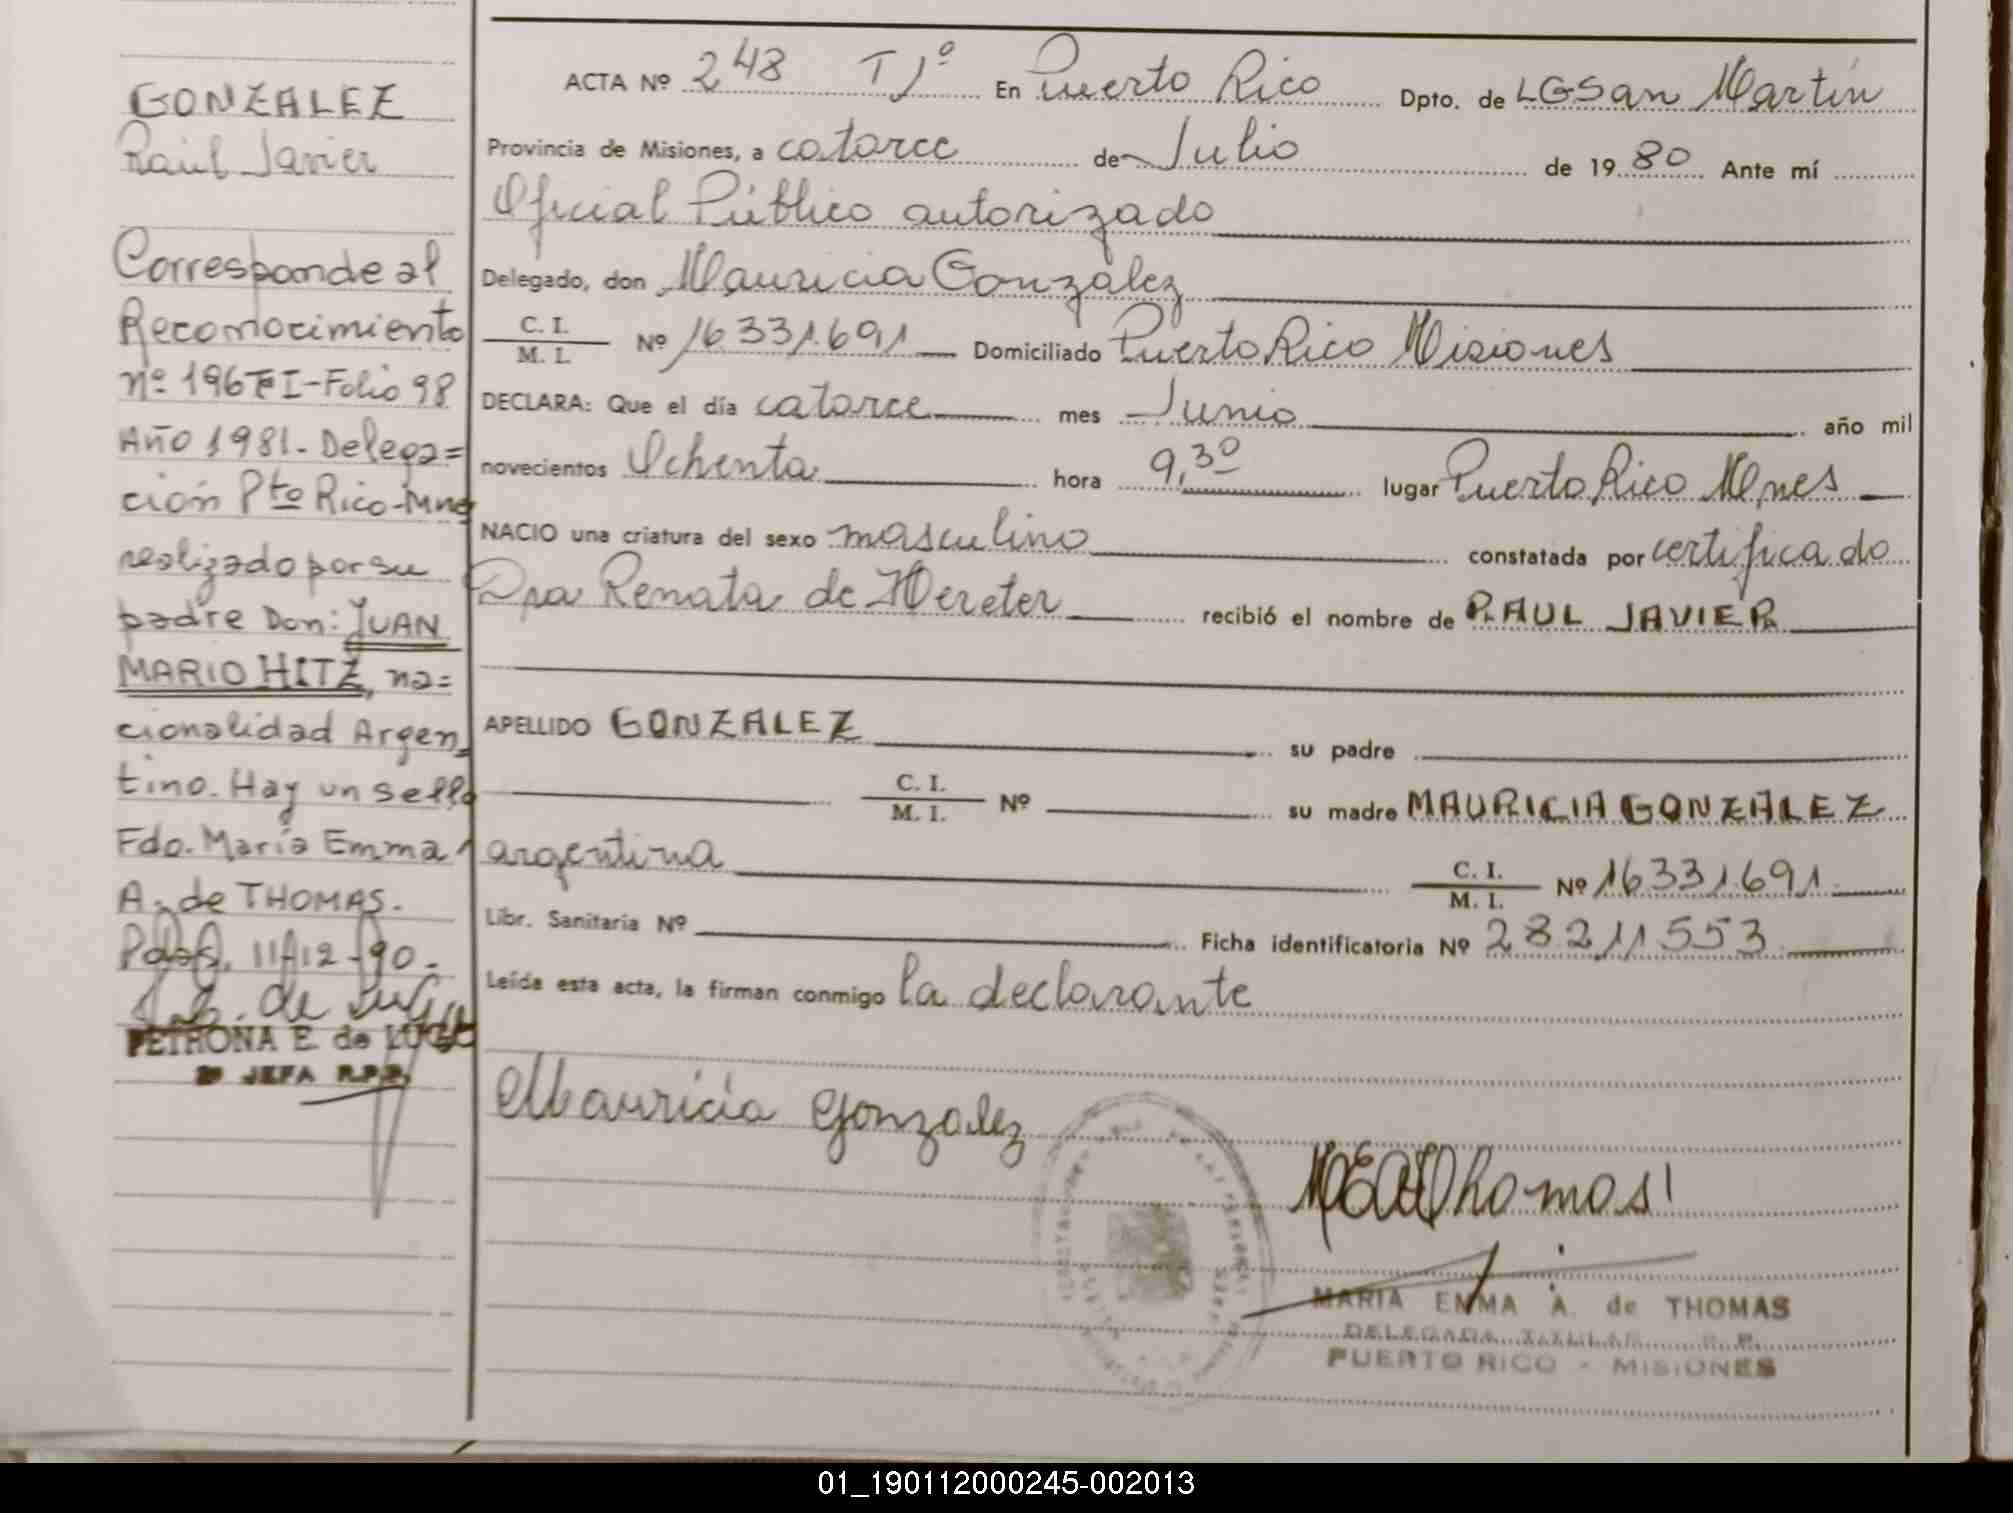 GONZALEZ
Raúl Javier
Corresponde al
Reconocimiento
nº 196 Tº I-Folio 98
Año 1981. Delega=
ción Pto Rico-Mnes
realizado por su
padre Don: JUAN
MARIO HITZ, na=
cionalidad Argen=
tino. Hay un sello
Fdo. María Emma
A. de THOMAS.
Pdas, 11-12-90.
de Lugo
PETRONA E. de LUGO
JEFA R.P.P.
ACTA Nº 248 T 1º En Puerto Rico Dpto. de LGSan Martín
Provincia de Misiones, a catorce de Julio de 1980 Ante mí
Oficial Público autorizado
Delegado, don Mauricia Gonzalez
C. I. / M. I. Nº 16.331.691 Domiciliado Puerto Rico Misiones
DECLARA: Que el día catorce mes Junio año mil
novecientos Ochenta hora 9,30 lugar Puerto Rico Mnes
NACIO una criatura del sexo masculino constatada por certificado
Dra Renata de Hereter recibió el nombre de RAUL JAVIER
APELLIDO GONZALEZ su padre
C. I. / M. I. Nº su madre MAURICIA GONZALEZ
argentina C. I. / M. I. Nº 16.331.691
Libr. Sanitaria Nº Ficha identificatoria Nº 28.211.553
Leída esta acta, la firman conmigo la declarante
Mauricia Gonzalez
MEAdThomas
MARIA EMMA A. de THOMAS
DELEGADA TITULAR R. P.
PUERTO RICO - MISIONES
01_190112000245-002013